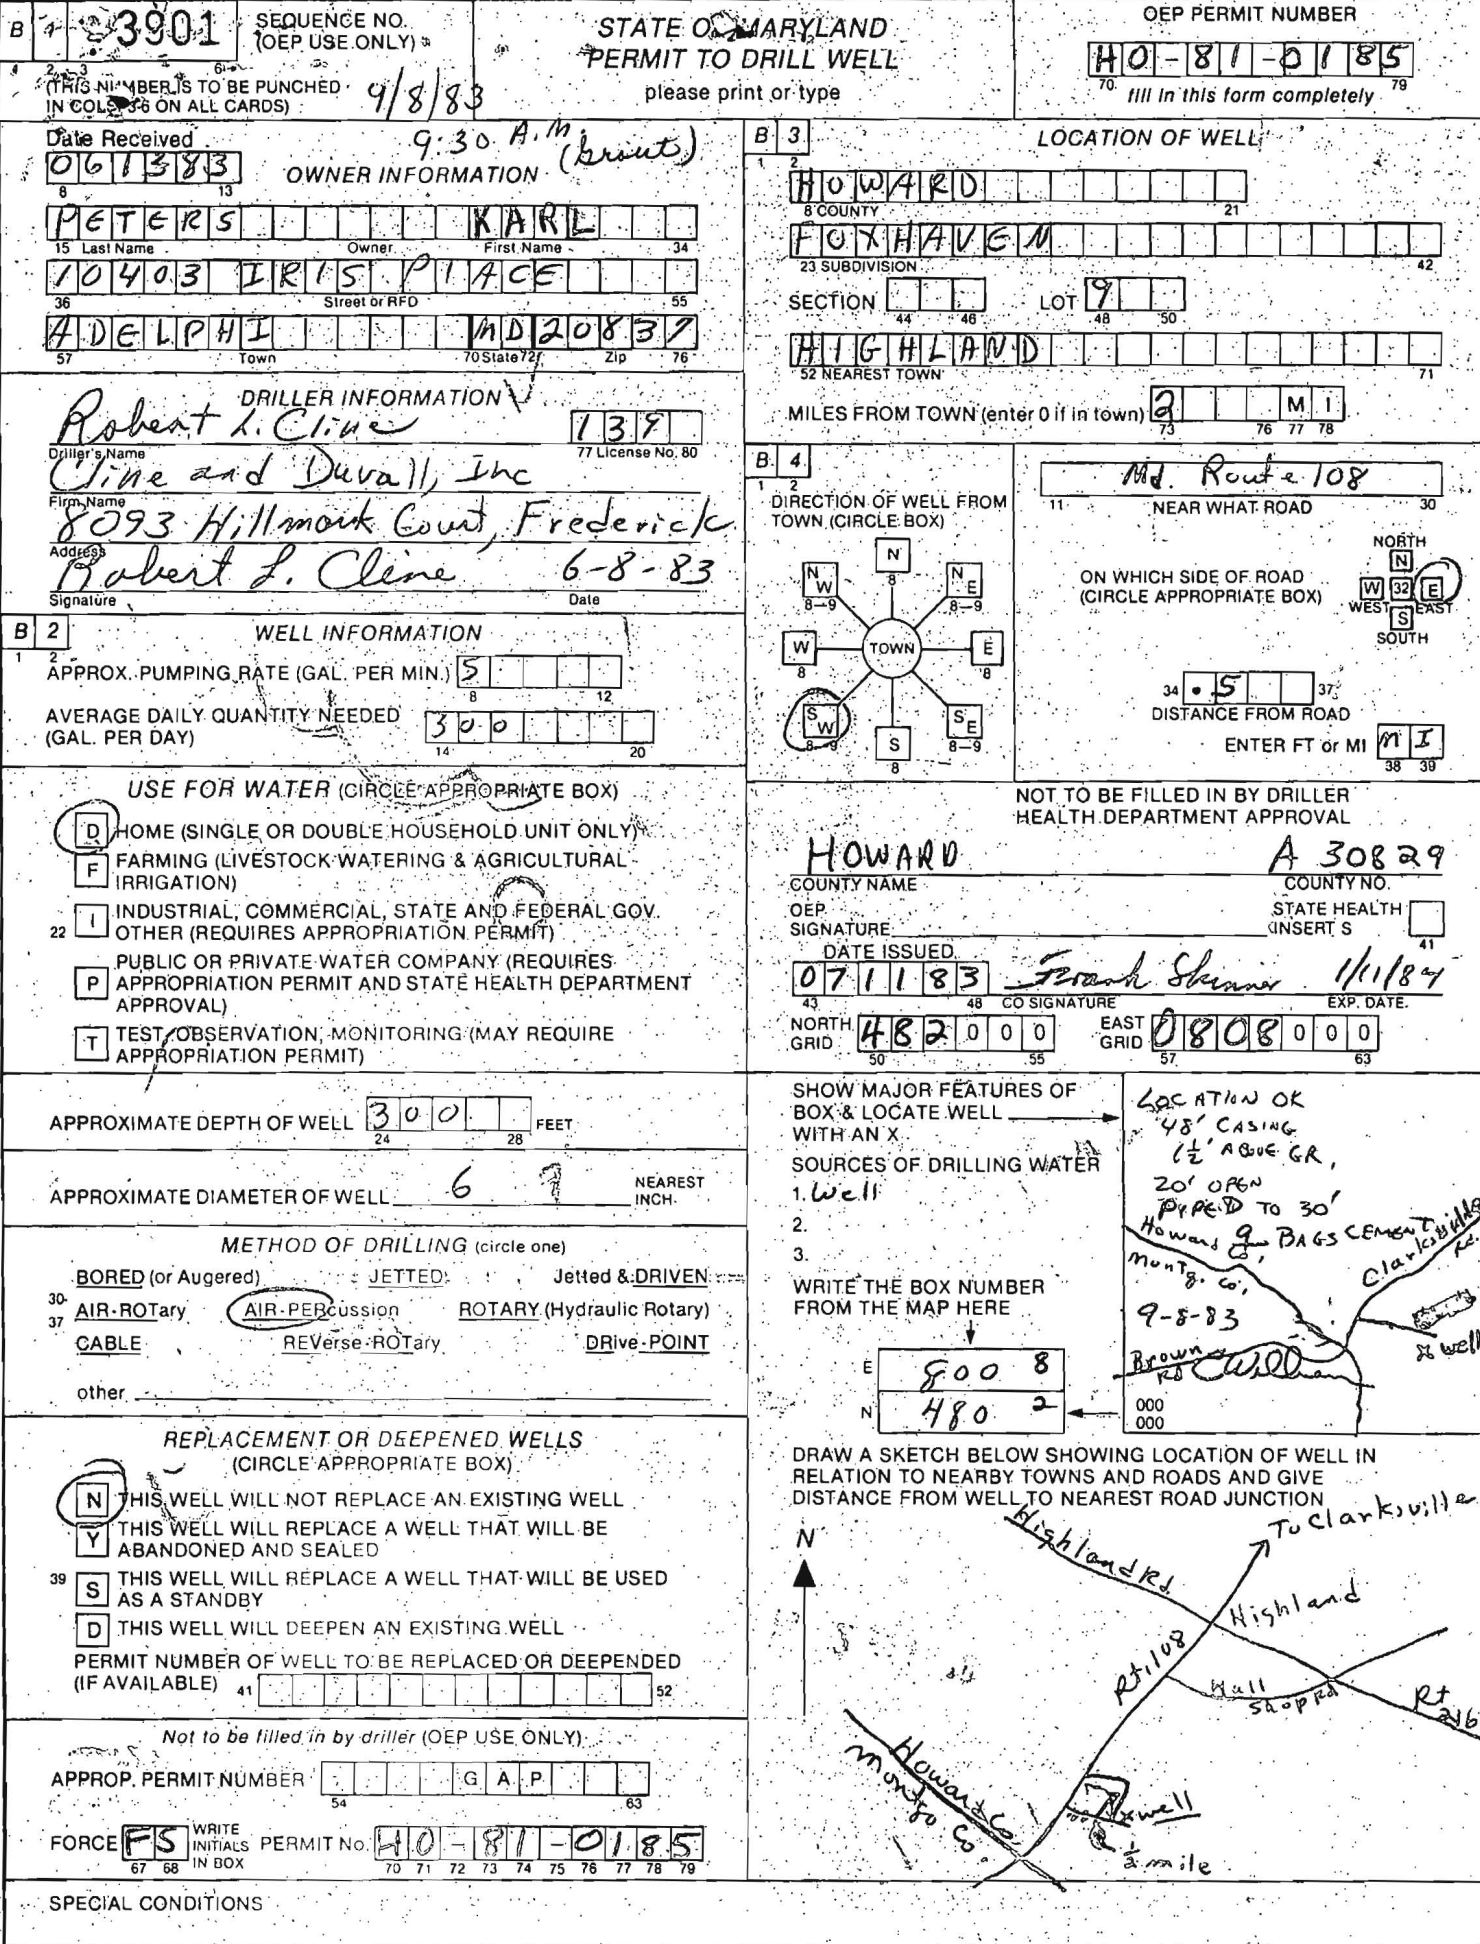 B 1 3901 SEQUENCE NO. (OEP USE ONLY)
1 2 3 6
(THIS NUMBER IS TO BE PUNCHED IN COLS. 3-6 ON ALL CARDS)
9/8/83
STATE OF MARYLAND
PERMIT TO DRILL WELL
please print or type
OEP PERMIT NUMBER
HO-81-0185
70 79
fill in this form completely
Date Received
061383
8 13
9:30 A.M. (Grout)
OWNER INFORMATION
PETERS KARL
15 Last Name Owner First Name 34
10403 IRIS PLACE
36 Street or RFD 55
ADELPHI MD 20837
57 Town 70 State 72 Zip 76
DRILLER INFORMATION
Robert L. Cline 139
Driller's Name 77 License No. 80
Cline and Duvall, Inc
Firm Name
8093 Hillmark Court, Frederick
Address
Robert L. Cline 6-8-83
Signature Date
B 2 WELL INFORMATION
1 2
APPROX. PUMPING RATE (GAL. PER MIN.) 5
8 12
AVERAGE DAILY QUANTITY NEEDED
(GAL. PER DAY) 300
14 20
USE FOR WATER (CIRCLE APPROPRIATE BOX)
D HOME (SINGLE OR DOUBLE HOUSEHOLD UNIT ONLY)
F FARMING (LIVESTOCK WATERING & AGRICULTURAL
IRRIGATION)
22 I INDUSTRIAL, COMMERCIAL, STATE AND FEDERAL GOV.
OTHER (REQUIRES APPROPRIATION PERMIT)
P PUBLIC OR PRIVATE WATER COMPANY (REQUIRES
APPROPRIATION PERMIT AND STATE HEALTH DEPARTMENT
APPROVAL)
T TEST, OBSERVATION, MONITORING (MAY REQUIRE
APPROPRIATION PERMIT)
APPROXIMATE DEPTH OF WELL 300 FEET
24 28
APPROXIMATE DIAMETER OF WELL 6 NEAREST INCH
METHOD OF DRILLING (circle one)
BORED (or Augered) JETTED Jetted & DRIVEN
30-37 AIR-ROTary AIR-PERcussion ROTARY (Hydraulic Rotary)
CABLE REVerse-ROTary DRive-POINT
other
REPLACEMENT OR DEEPENED WELLS
(CIRCLE APPROPRIATE BOX)
N THIS WELL WILL NOT REPLACE AN EXISTING WELL
Y THIS WELL WILL REPLACE A WELL THAT WILL BE
ABANDONED AND SEALED
39 S THIS WELL WILL REPLACE A WELL THAT WILL BE USED
AS A STANDBY
D THIS WELL WILL DEEPEN AN EXISTING WELL
PERMIT NUMBER OF WELL TO BE REPLACED OR DEEPENED
(IF AVAILABLE) 41 52
Not to be filled in by driller (OEP USE ONLY)
APPROP. PERMIT NUMBER G A P
54 63
FORCE FS WRITE INITIALS IN BOX PERMIT No. HO-81-0185
67 68 70 71 72 73 74 75 76 77 78 79
SPECIAL CONDITIONS
B 3 LOCATION OF WELL
1 2
HOWARD
8 COUNTY 21
FOXHAVEN
23 SUBDIVISION 42
SECTION LOT 9
44 46 48 50
HIGHLAND
52 NEAREST TOWN 71
MILES FROM TOWN (enter 0 if in town) 2 MI
73 76 77 78
B 4
1 2
DIRECTION OF WELL FROM
TOWN (CIRCLE BOX)
N
8
NW NE
8-9 8-9
W TOWN E
8 8
SW S SE
8-9 8 8-9
Md. Route 108
11 NEAR WHAT ROAD 30
ON WHICH SIDE OF ROAD
(CIRCLE APPROPRIATE BOX)
NORTH
N
W 32 E
WEST EAST
S
SOUTH
34 .5 37
DISTANCE FROM ROAD
ENTER FT or MI MI
38 39
NOT TO BE FILLED IN BY DRILLER
HEALTH DEPARTMENT APPROVAL
HOWARD A 30829
COUNTY NAME COUNTY NO.
OEP SIGNATURE STATE HEALTH INSERT S
41
DATE ISSUED
071183 Frank Skinner 1/11/84
43 48 CO SIGNATURE EXP. DATE
NORTH GRID 482000 EAST GRID 0808000
50 55 57 63
SHOW MAJOR FEATURES OF
BOX & LOCATE WELL
WITH AN X
SOURCES OF DRILLING WATER
1. Well
2.
3.
WRITE THE BOX NUMBER
FROM THE MAP HERE
E 800 8
N 480 2
LOCATION OK
48' CASING
1½' ABOVE GR,
20' OPEN
PIPED TO 30'
9 BAGS CEMENT
Howard Co,
Montg. Co,
Clarksville Rd.
9-8-83
Brown Rd
X well
000
000
DRAW A SKETCH BELOW SHOWING LOCATION OF WELL IN
RELATION TO NEARBY TOWNS AND ROADS AND GIVE
DISTANCE FROM WELL TO NEAREST ROAD JUNCTION
N
Highland Rd.
To Clarksville
Highland
Rt. 108
Hall Shop Rd
Rt 216
Howard Co.
Montgo Co.
x well
½ mile